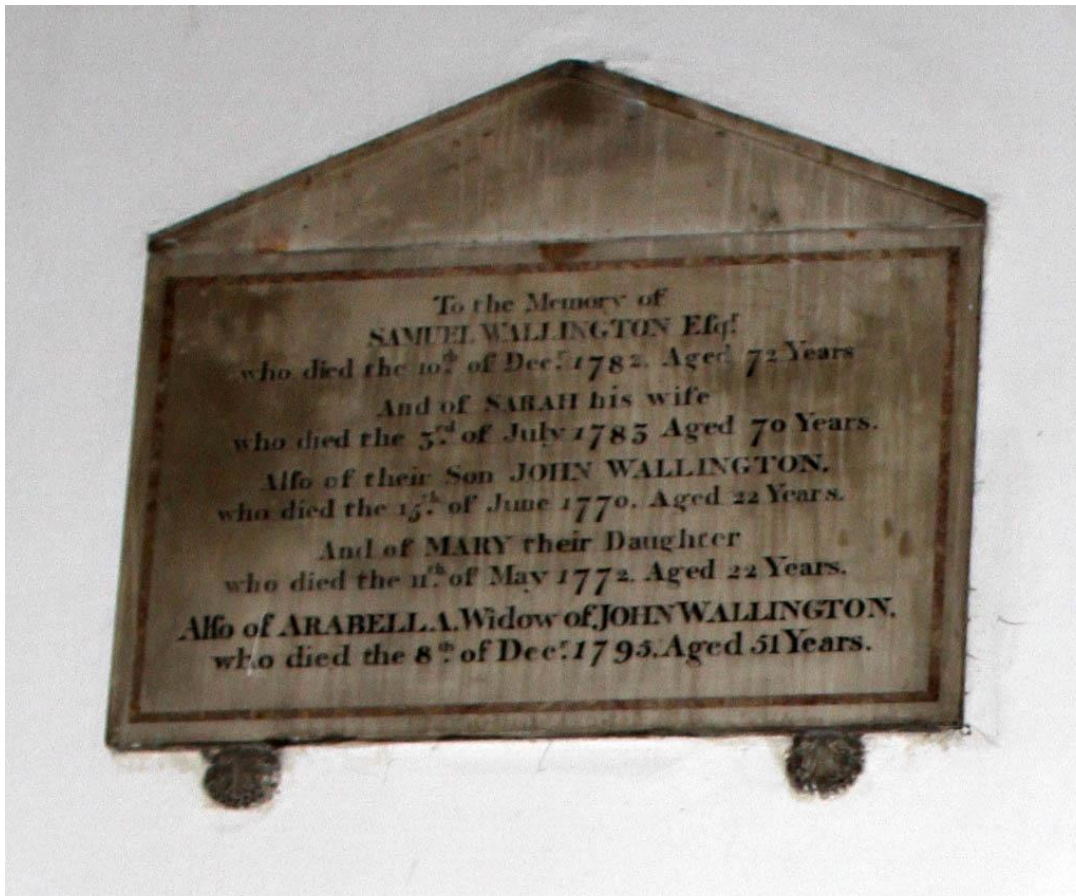 To the Memory of
SAMUEL WALLINGTON Eſqr.
who died the 10th. of Decr. 1782. Aged 72 Years
And of SARAH his wife
who died the 3rd. of July 1783 Aged 70 Years.
Alſo of their Son JOHN WALLINGTON.
who died the 15th. of June 1770. Aged 22 Years.
And of MARY their Daughter
who died the 11th. of May 1772. Aged 22 Years.
Alſo of ARABELLA. Widow of JOHN WALLINGTON.
who died the 8th. of Decr. 1795. Aged 51 Years.